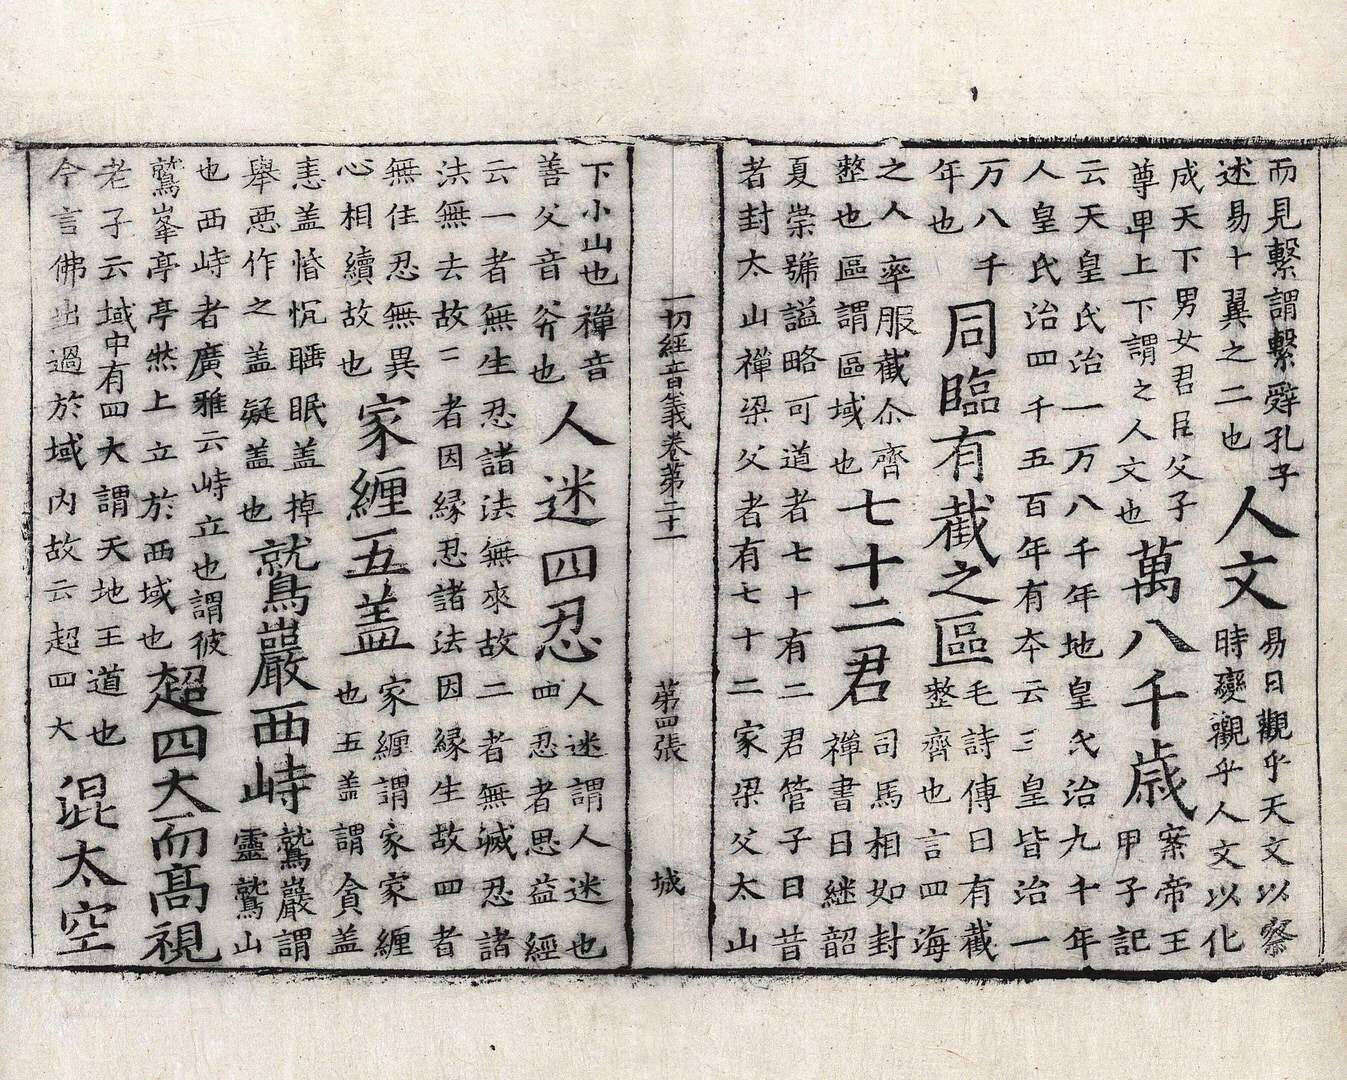 而見繫謂繫辭孔子
述易十翼之二也
人文
易曰觀乎天文以察
時變觀乎人文以化
成天下男女君臣父子
尊卑上下謂之人文也
萬八千歳
案帝王
甲子記
云天皇氏治一万八千年地皇氏治九千年
人皇氏治四千五百年有夲云三皇皆治一
万八千
年也
同臨有截之區
毛詩傳曰有截
整齊也言四海
之人率服截尒齊
整也區謂區域也
七十二君
司馬相如封
禪書曰継韶
夏崇號謚略可道者七十有二君管子曰昔
者封太山禪梁父者有七十二家梁父太山
一切經音義卷第二十一 苐四張 城
下小山也禪音
善父音斧也
人迷四忍
人迷謂人迷也
四忍者思益經
云一者無生忍諸法無來故二者無滅忍諸
法無去故二者因緣忍諸法因緣生故四者
無住忍無異
心相續故也
家纏五盖
家纏謂家家纏
也五盖謂貪盖
恚盖惛沉睡眠盖掉
舉惡作之盖疑盖也
鷲巖西峙
鷲巖謂
靈鷲山
也西峙者廣雅云峙立也謂彼
鷲峯亭亭然上立於西域也
超四大而髙視
老子云域中有四大謂天地王道也
今言佛出過於域內故云超四大
混太空